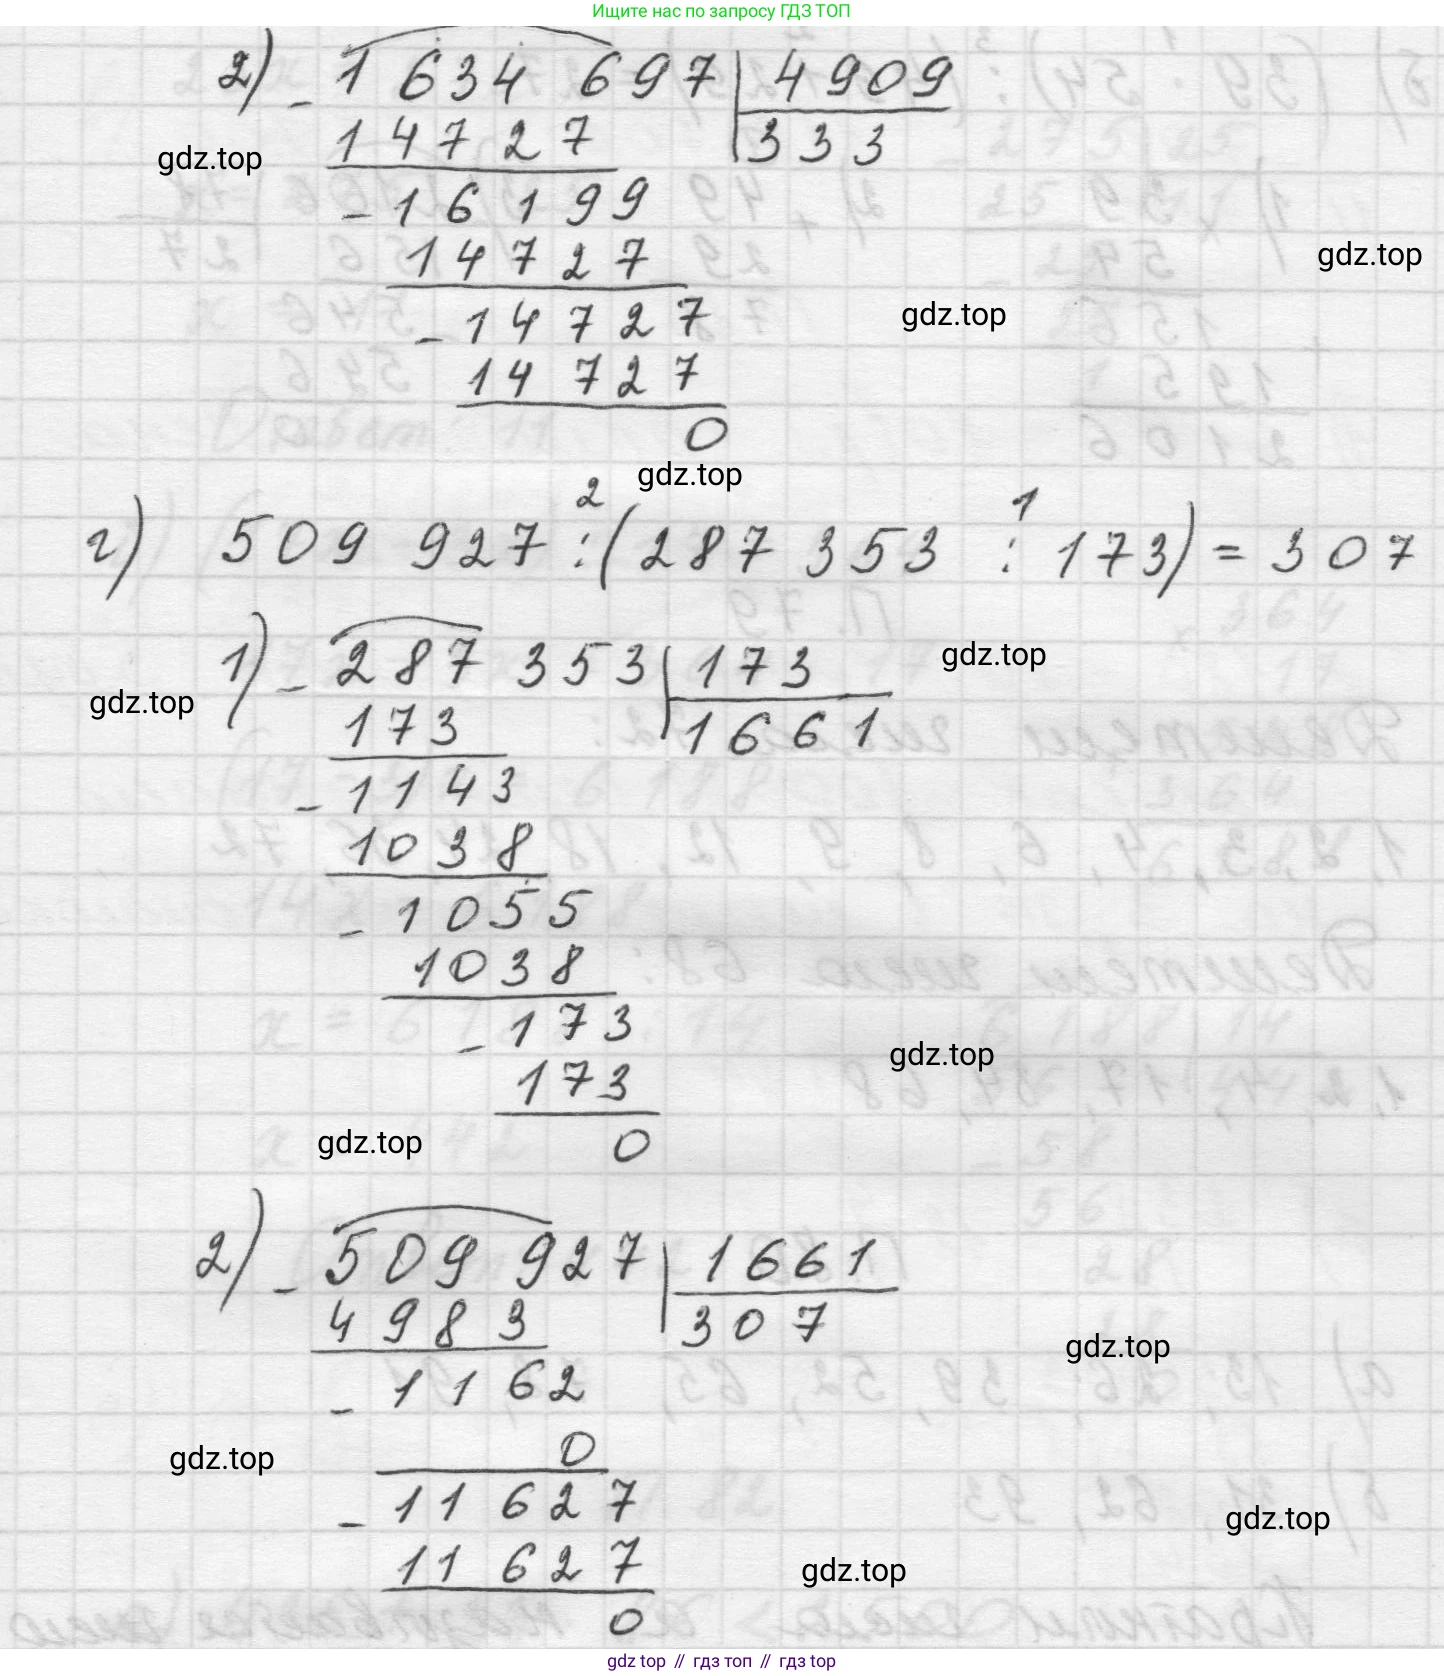 Ищите нас по запросу ГДЗ ТОП
2) - 1 634 697 | 4909
14727 | 333
gdz.top
- 16199
14727
gdz.top
- 14727
gdz.top
14727
0
gdz.top
2 1
г) 509 927 : (287 353 : 173) = 307
1) - 287 353 | 173
gdz.top
173 | 1661
gdz.top
- 1143
1038
- 1055
1038
- 173
gdz.top
173
gdz.top
0
2) - 509 927 | 1661
4983 | 307
gdz.top
- 1162
0
gdz.top
- 11627
gdz.top
11627
gdz.top
0
gdz top // гдз топ // гдз top